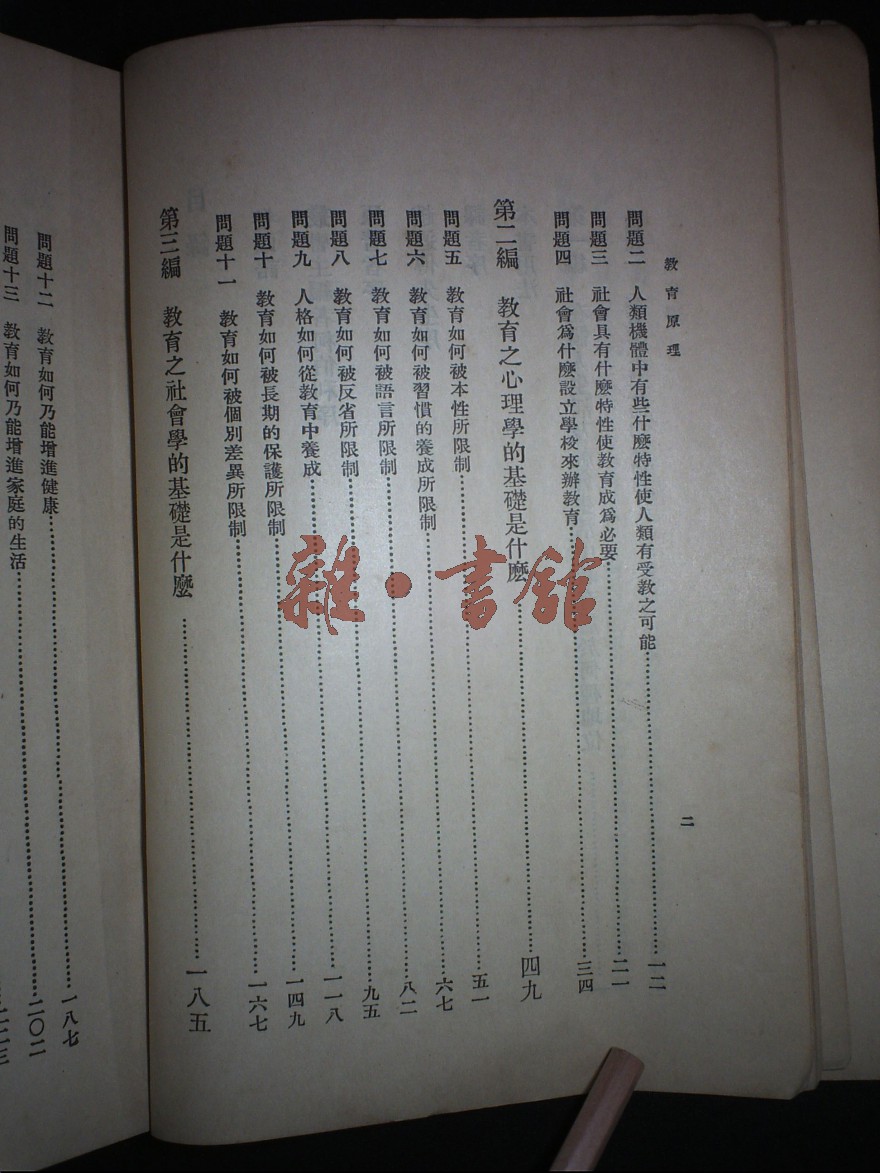 教育原理
二
問題二 人類機體中有些什麼特性使人類有受教之可能……一二
問題三 社會具有什麼特性使教育成爲必要……二一
問題四 社會爲什麼設立學校來辦教育……三四
第二編 教育之心理學的基礎是什麼……四九
問題五 教育如何被本性所限制……五一
問題六 教育如何被習慣的養成所限制……六七
問題七 教育如何被語言所限制……八二
問題八 教育如何被反省所限制……九五
問題九 人格如何從教育中養成……一一八
問題十 教育如何被長期的保護所限制……一四九
問題十一 教育如何被個別差異所限制……一六七
第三編 教育之社會學的基礎是什麼……一八五
問題十二 教育如何乃能增進健康……一八七
問題十三 教育如何乃能增進家庭的生活……二〇二
二二三
雜·書館